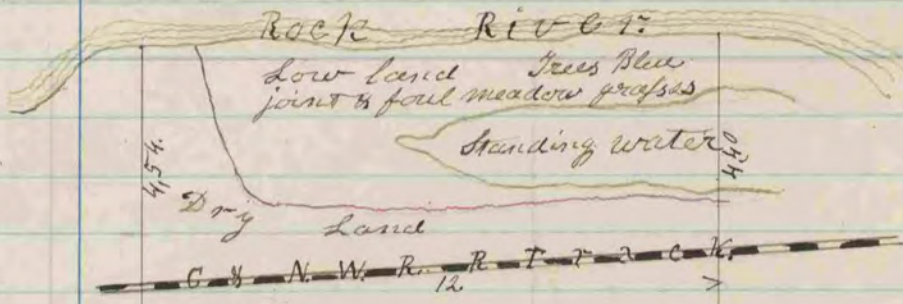 Rock River.
Low land Trees Blue
joint & foul meadow grasses
Standing water
4,54.
4,40
Dry Land
C & N. W. R. R Track.
12.